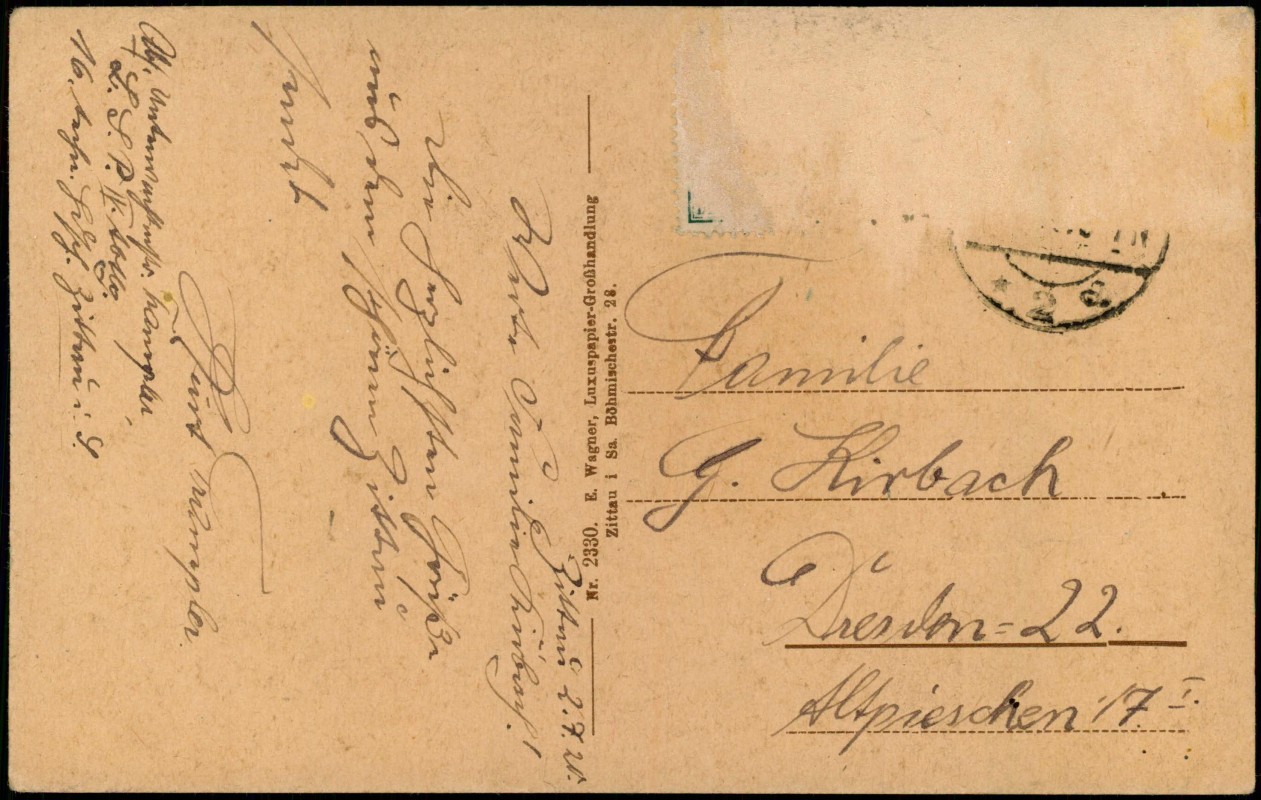 Zittau 2.7.20.
Werte Familie Kirbach!
Die herzlichsten Grüße
aus dem schönen Zittau
sendet
Kurt Kampler.
Abs. Unterwachtmstr. Kampler
16. Zittau i. S.
Nr. 2330. E. Wagner, Luxuspapier-Großhandlung
Zittau i Sa. Böhmischestr. 28.
* 2 c
Familie
G. Kirbach
Dresden-22.
Altpieschen 17 I.